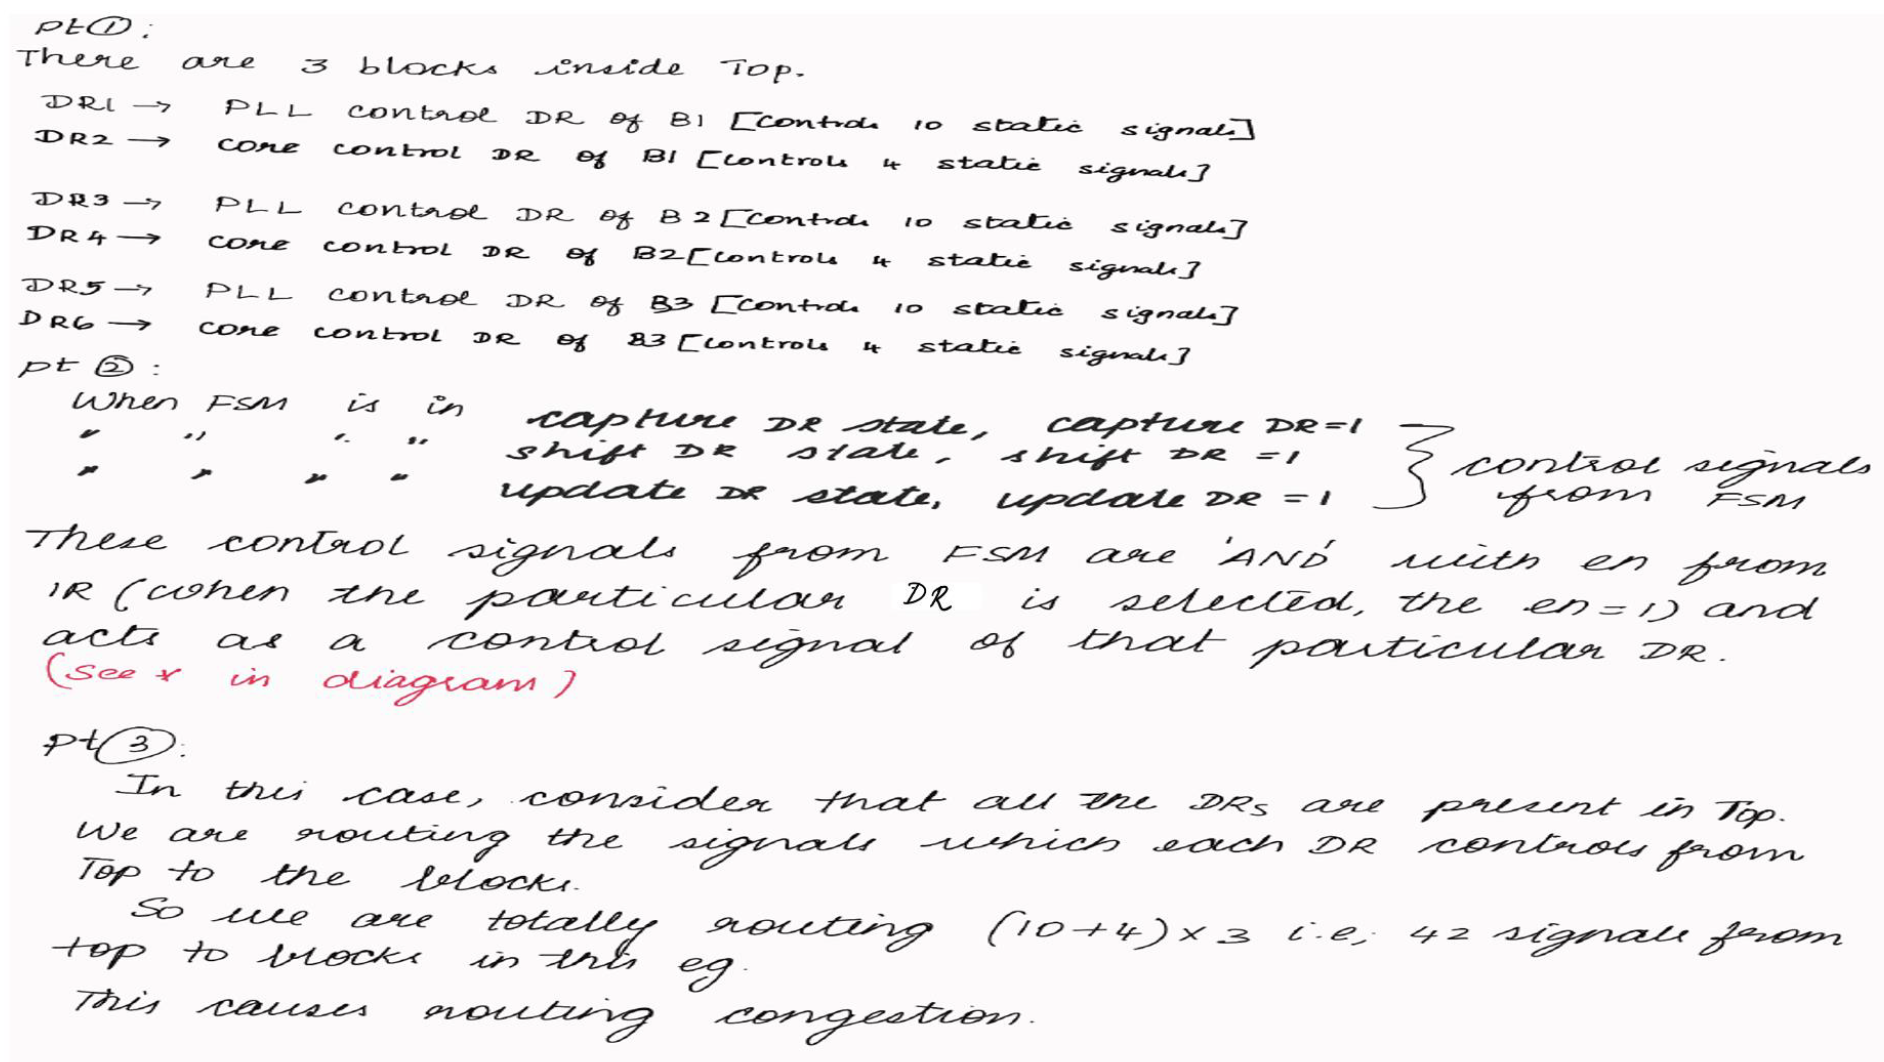 pt①:
There are 3 blocks inside Top.
DR1 → PLL control DR of B1 [Controls 10 static signals]
DR2 → core control DR of B1 [Controls 4 static signals]
DR3 → PLL control DR of B2 [Controls 10 static signals]
DR4 → core control DR of B2 [Controls 4 static signals]
DR5 → PLL control DR of B3 [Controls 10 static signals]
DR6 → core control DR of B3 [Controls 4 static signals]
pt ②:
When FSM is in capture DR state, capture DR=1
" " " " shift DR state, shift DR =1 } control signals
" " " " update DR state, update DR =1 from FSM
These control signals from FSM are 'AND' with en from
IR (when the particular DR is selected, the en=1) and
acts as a control signal of that particular DR.
(See * in diagram)
pt③:
In this case, consider that all the DRs are present in Top.
We are routing the signals which each DR controls from
Top to the blocks.
So we are totally routing (10+4)×3 i.e; 42 signals from
top to blocks in this eg.
This causes routing congestion.